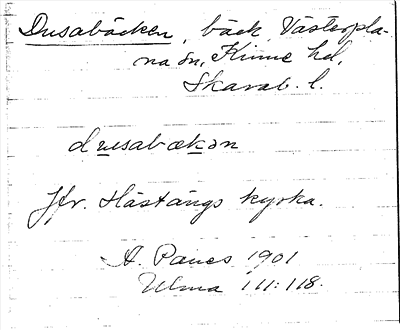 Dusabäcken, bäck, Västerpla-
na sn, Kinne hd,
Skarab. l.
dusabækən
Jfr. Hästängs kyrka.
A. Paues 1901
Ulma 111:118.